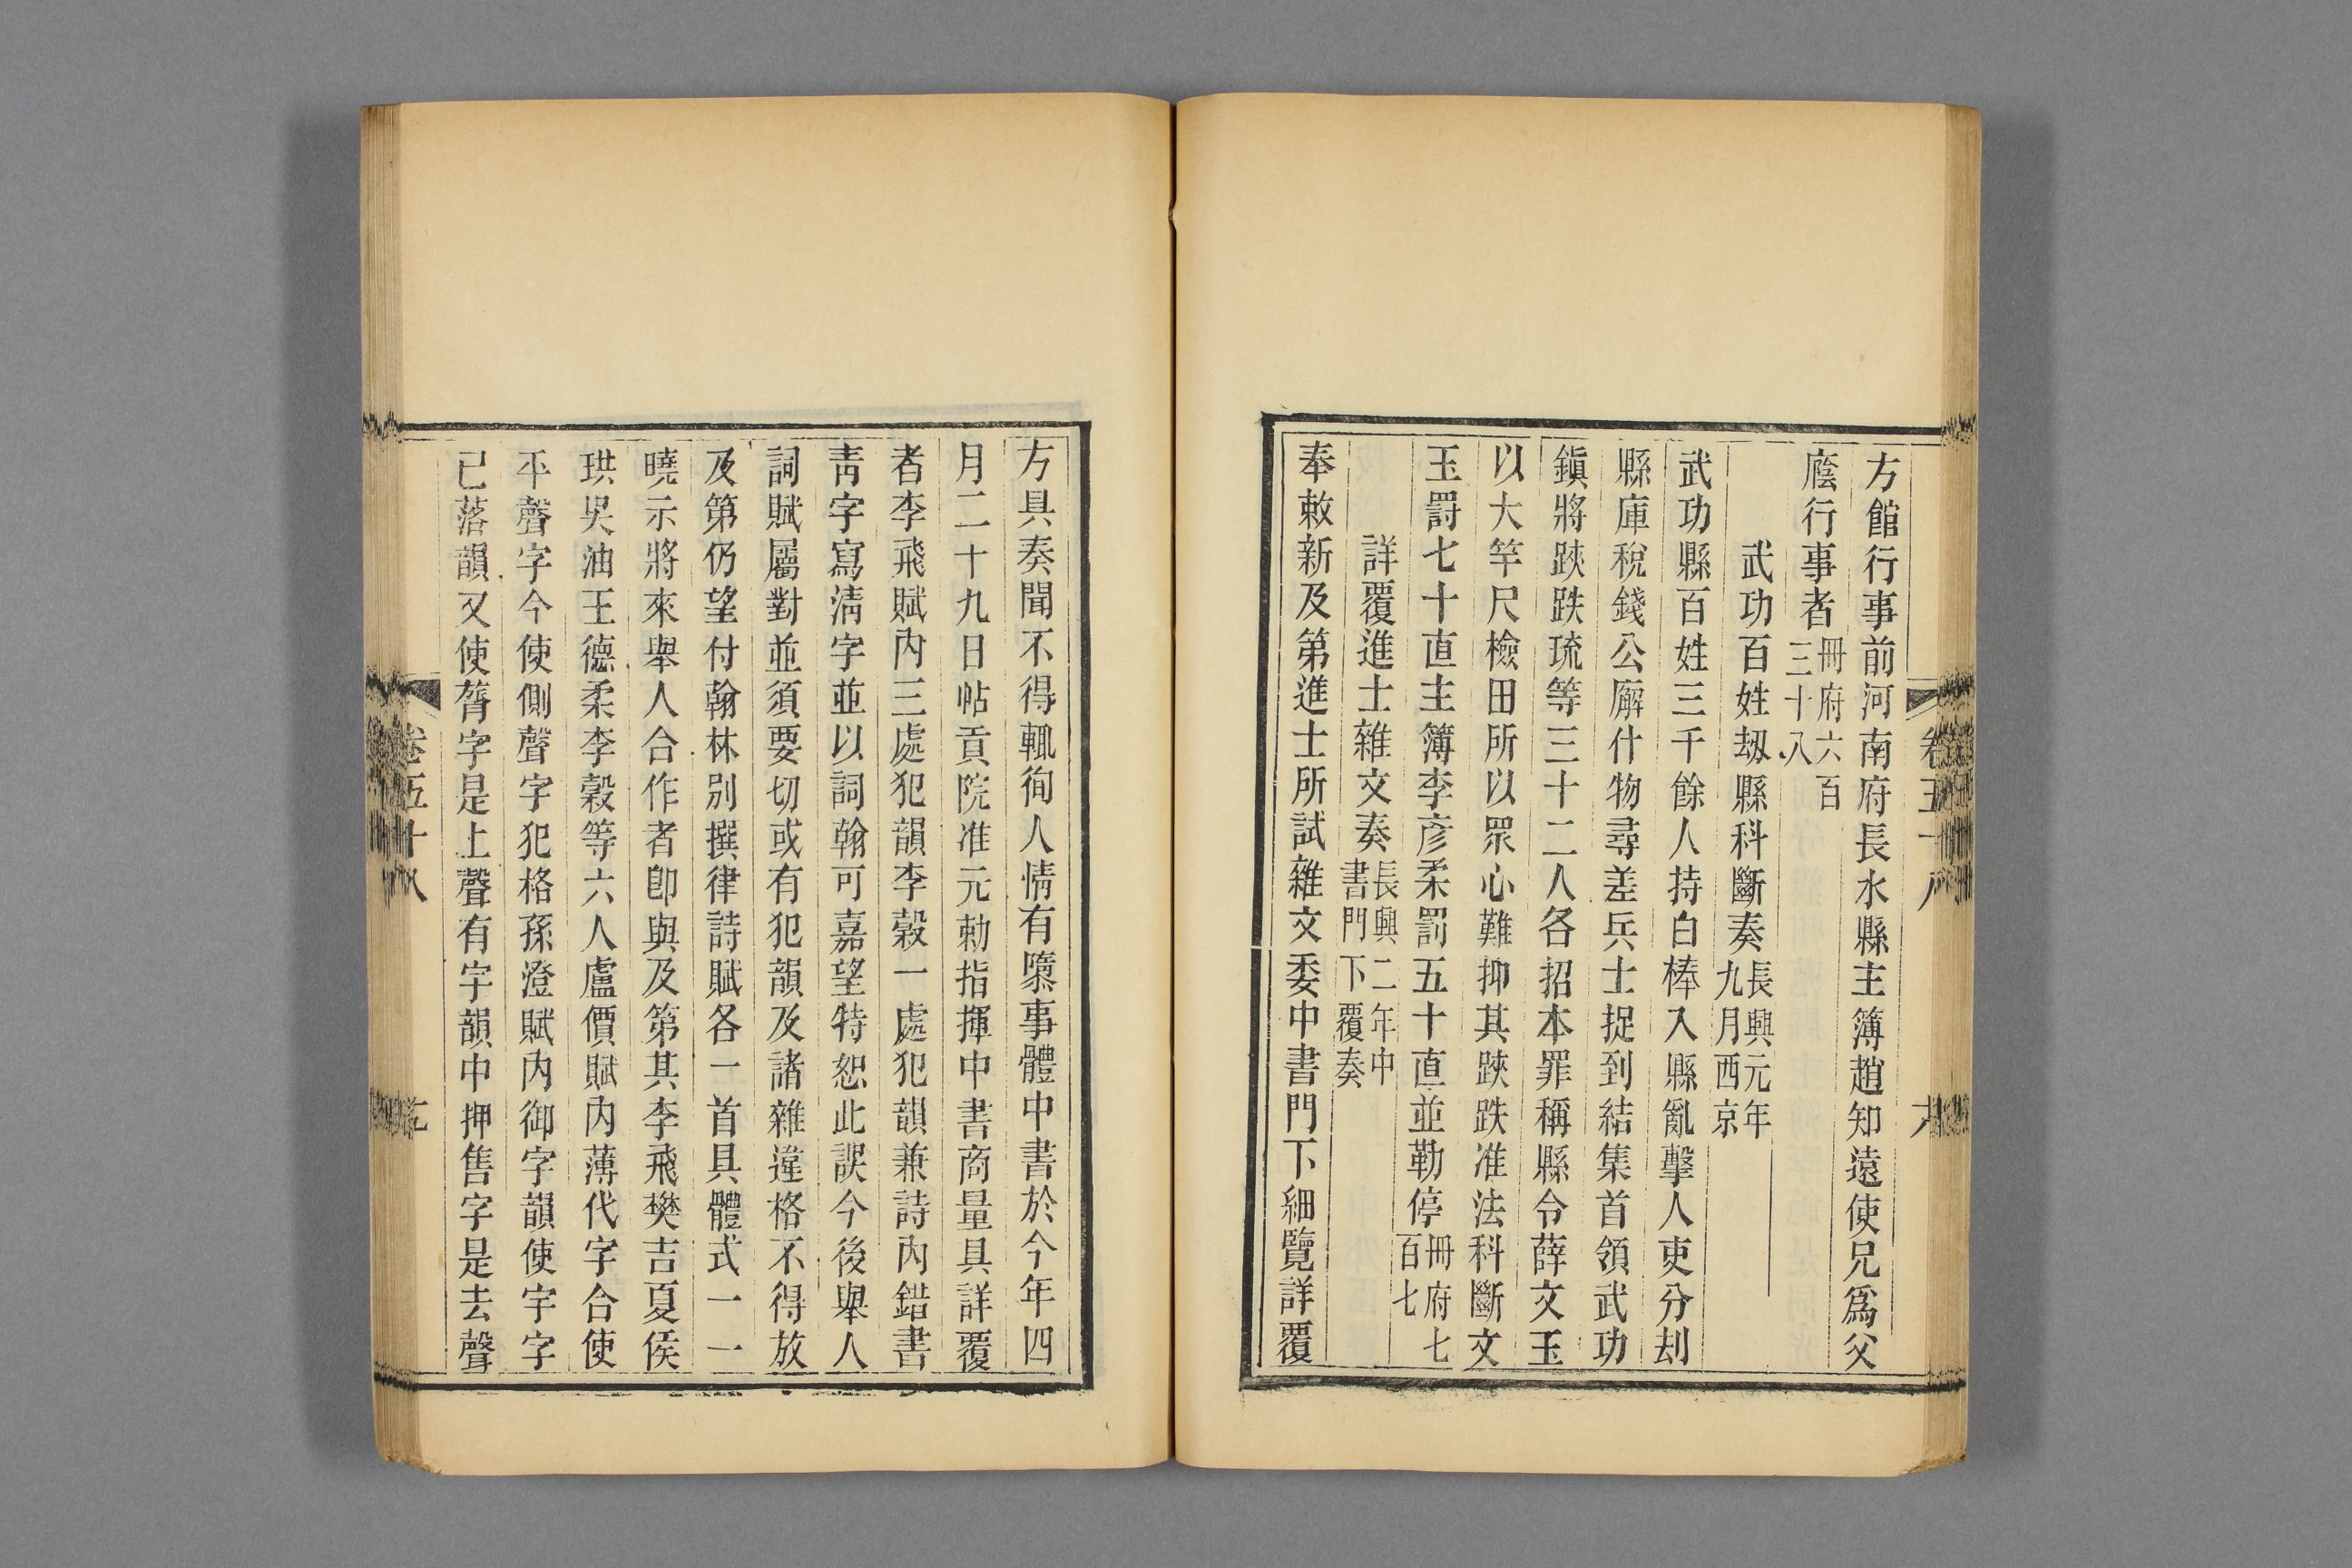 方館行事前河南府長水縣主簿趙知遠使兄爲父
廕行事者冊府六百三十八
武功百姓刼縣科斷奏長興元年九月西京
武功縣百姓三千餘人持白棒入縣亂擊人吏分刦
縣庫稅錢公廨什物尋差兵士捉到結集首領武功
鎭將䟿跌琉等三十二人各招本罪稱縣令薛文玉
以大竿尺檢田所以眾心難抑其䟿跌准法科斷文
玉罸七十直主簿李彥柔罰五十直並勒停冊府七百七
詳覆進士雜文奏長興二年中書門下覆奏
奉敕新及第進士所試雜文委中書門下細覽詳覆
方具奏聞不得輒徇人情有隳事體中書於今年四
月二十九日帖貢院准元勅指揮中書商量具詳覆
者李飛賦內三處犯韻李穀一處犯韻兼詩內錯書
靑字寫淸字並以詞翰可嘉望特恕此誤今後舉人
詞賦屬對並須要切或有犯韻及諸雜違格不得放
及第仍望付翰林別撰律詩賦各一首具體式一一
曉示將來舉人合作者卽與及第其李飛樊吉夏侯
珙吳油王德柔李穀等六人盧價賦內薄代字合使
平聲字今使側聲字犯格孫澄賦內御字韻使宇字
已落韻又使膂字是上聲有字韻中押售字是去聲
卷五十八